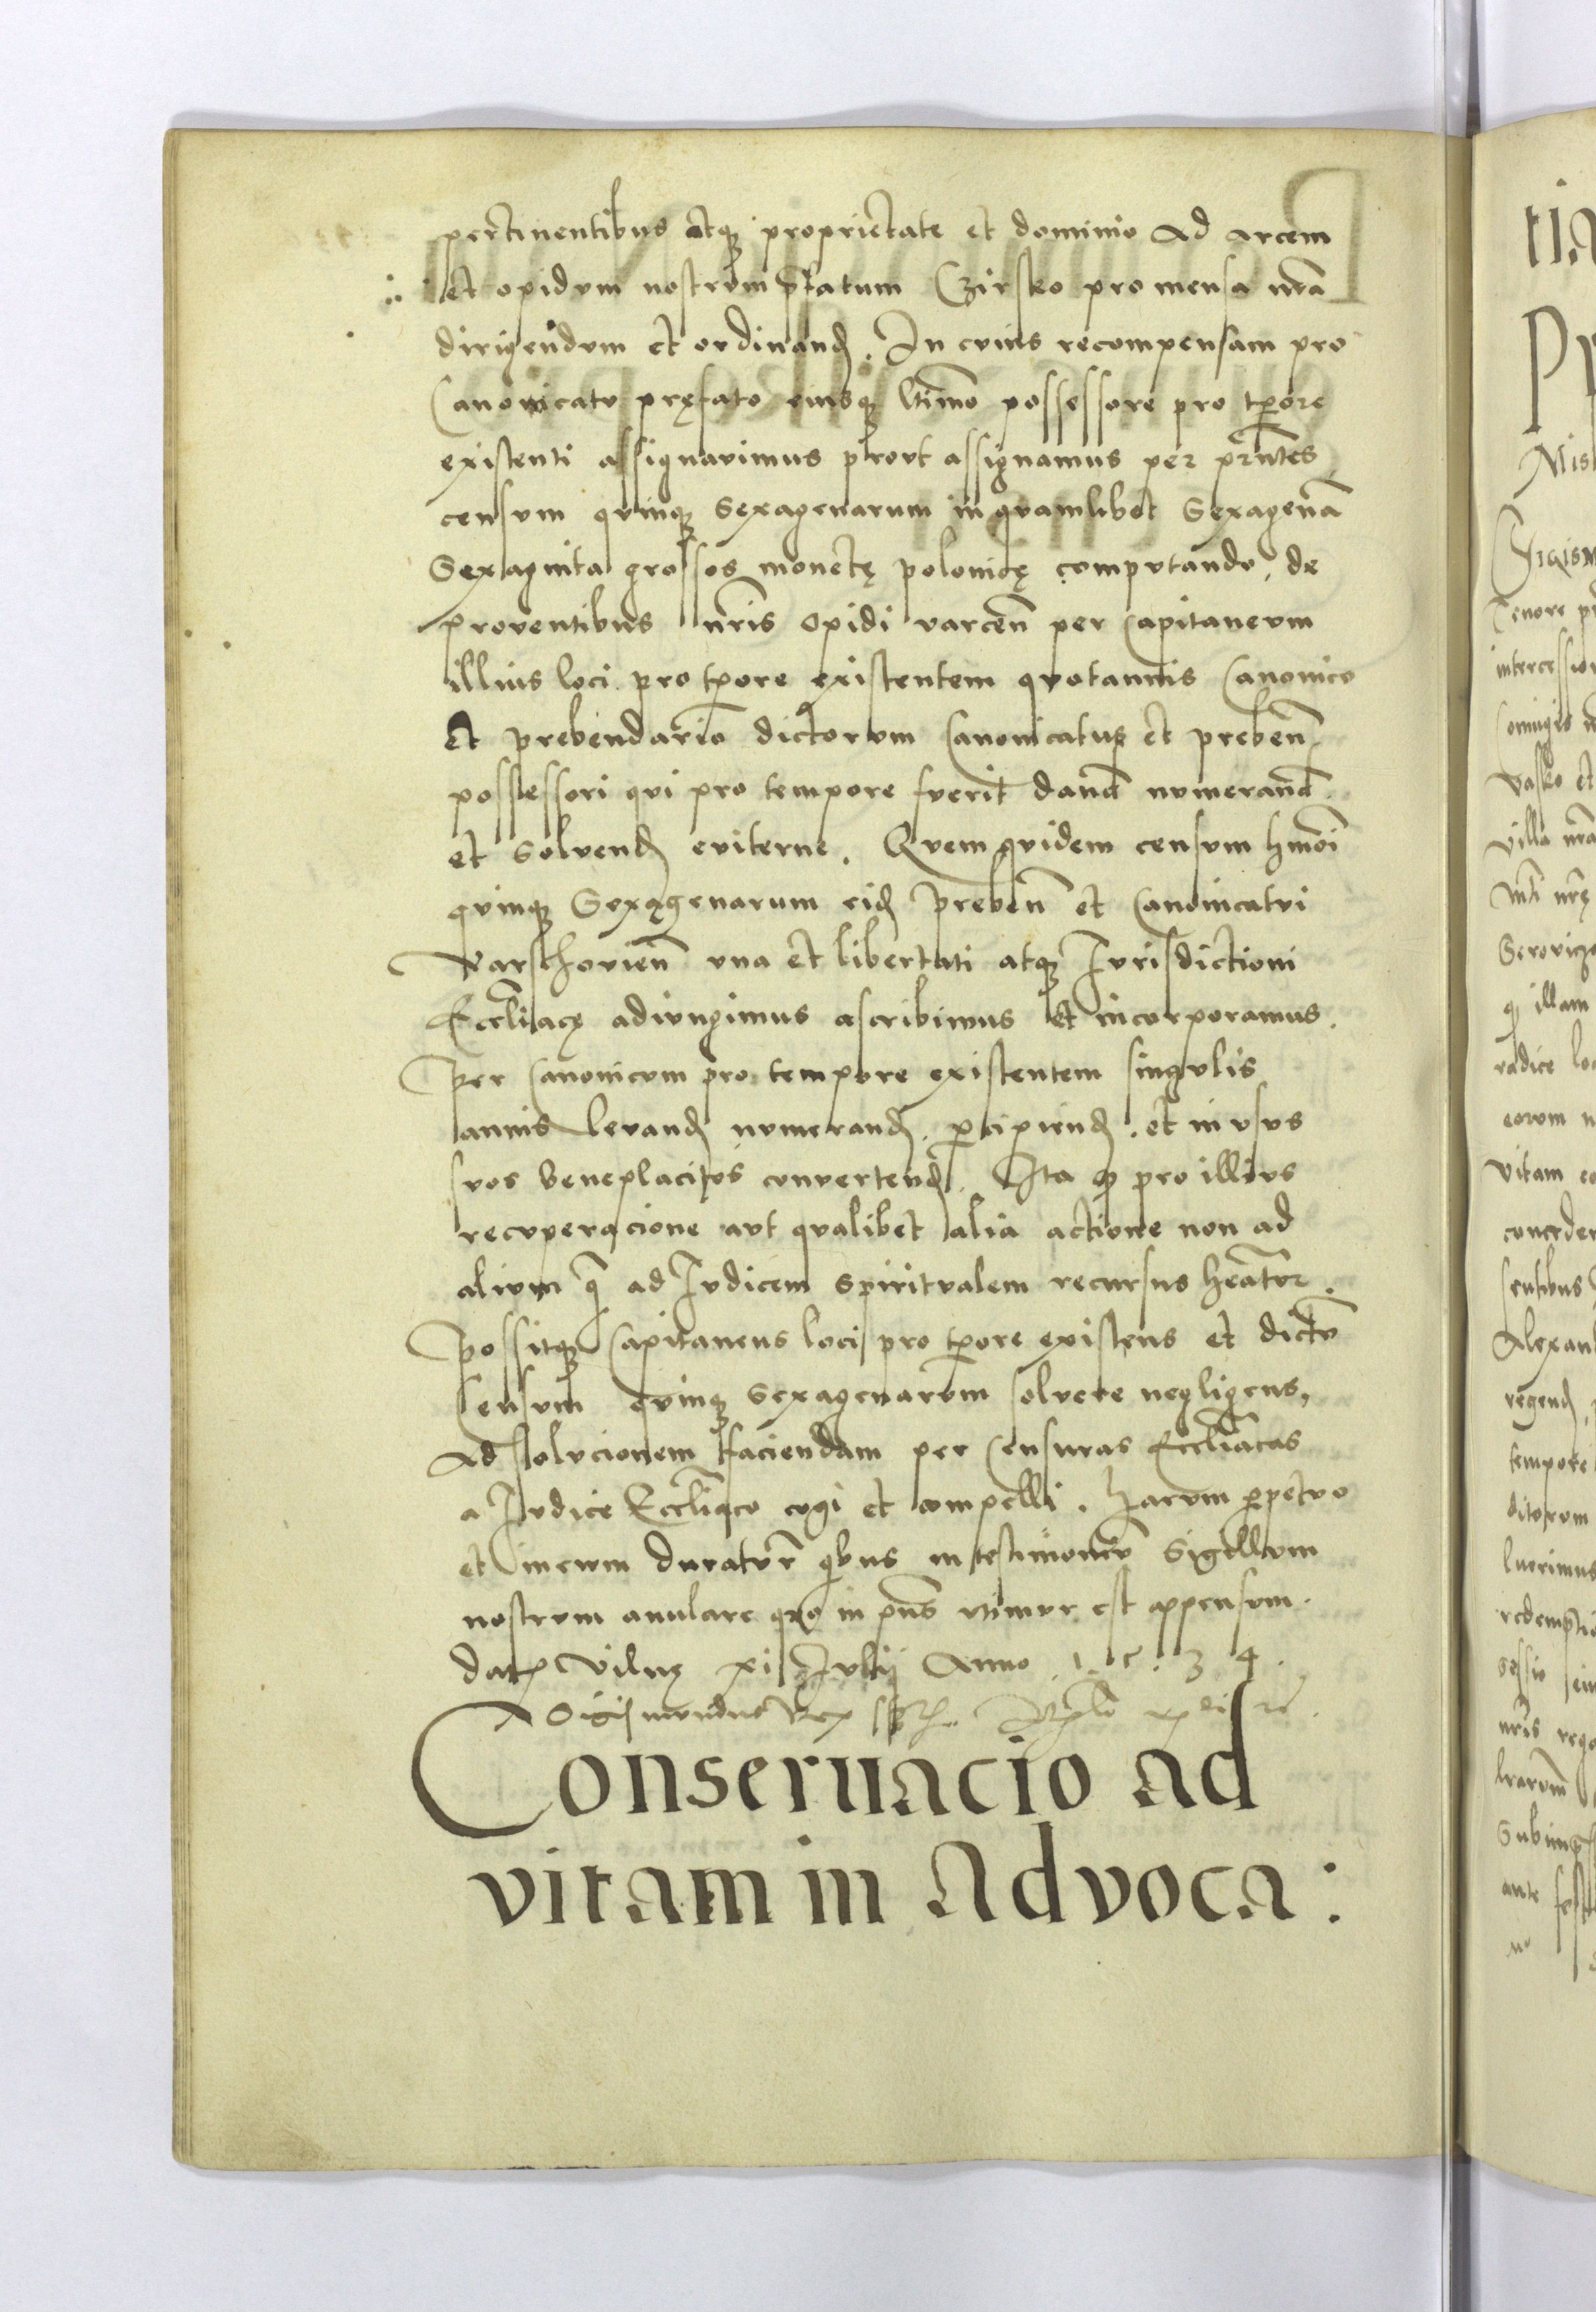 pertinentibus atq₃ proprietate et dominio ad arcem
et opidum nostrum p̃fatum Czirsko pro mensa nr̃a
dirigendum et ordinand̨. In cuius recompensam pro
Canonicatu pręfato eiusq₃ l̃timo possessore pro tp̃ore
existenti assignauimus prout assignamus per pr̃ntes
censum quinq₃ Sexagenarum in quamlibet Sexagenã
Sexaginta grossos monetę polonicę computando, de
prouentibus nr̃is opidi varceñ per Capitaneum
illius loci pro tp̃ore existentem quotannis Canonico
et prebendario dictorum Canonicatus et prebeñ
possessori qui pro tempore fuerit dand̃ numerand̃
et soluend̨ euiterne. Quem quidem censum hmõi
quinq₃ Sexagenarum eid̨ prebeñ et Canonicatui
Varschouieñ vna et libertati atq₃ Iurisdictioni
Eccl̃iacę adiungimus ascribimus et incorporamus.
Per Canonicum pro tempore existentem singulis
annis leuand̨ numerand̨. p̱cipiend̨. et in usus
suos beneplacitos conuertend̨. Ita q̨ pro illius
recuperacione aut qualibet alia actione non ad
alium q̃ ad Iudicem spiritualem recursus heãtur.
Possitq₃ Capitaneus loci pro tp̃ore existens et dictũ
Censum quinq₃ sexagenarum soluere negligens,
Ad solucionem faciendam per Censuras Eccl̃iacas
a Iudice Eccl̃iaco cogi et compelli. harum p̱petuo
et in eum duratur̃ q̃bus in testimoniũ Sigillum
nostrum anulare quo in pñs utimur est appensum.
dat̨ Vilnę xi Iulij Anno .1.5.3 4.
Sigismundus Rex
Conseruacio ad
vitam in Aduoca:
tia
Pr
Mis
Sigism
Tenore pr
intercession
vasko et
villa nr̃a
nr̃ę
q̨ illam
radice loc
eorum n
vitam eo
conceden
Alexan
regend̨
tempore
ditorum
luerimus
redemptio
nr̃is rega
ante fest